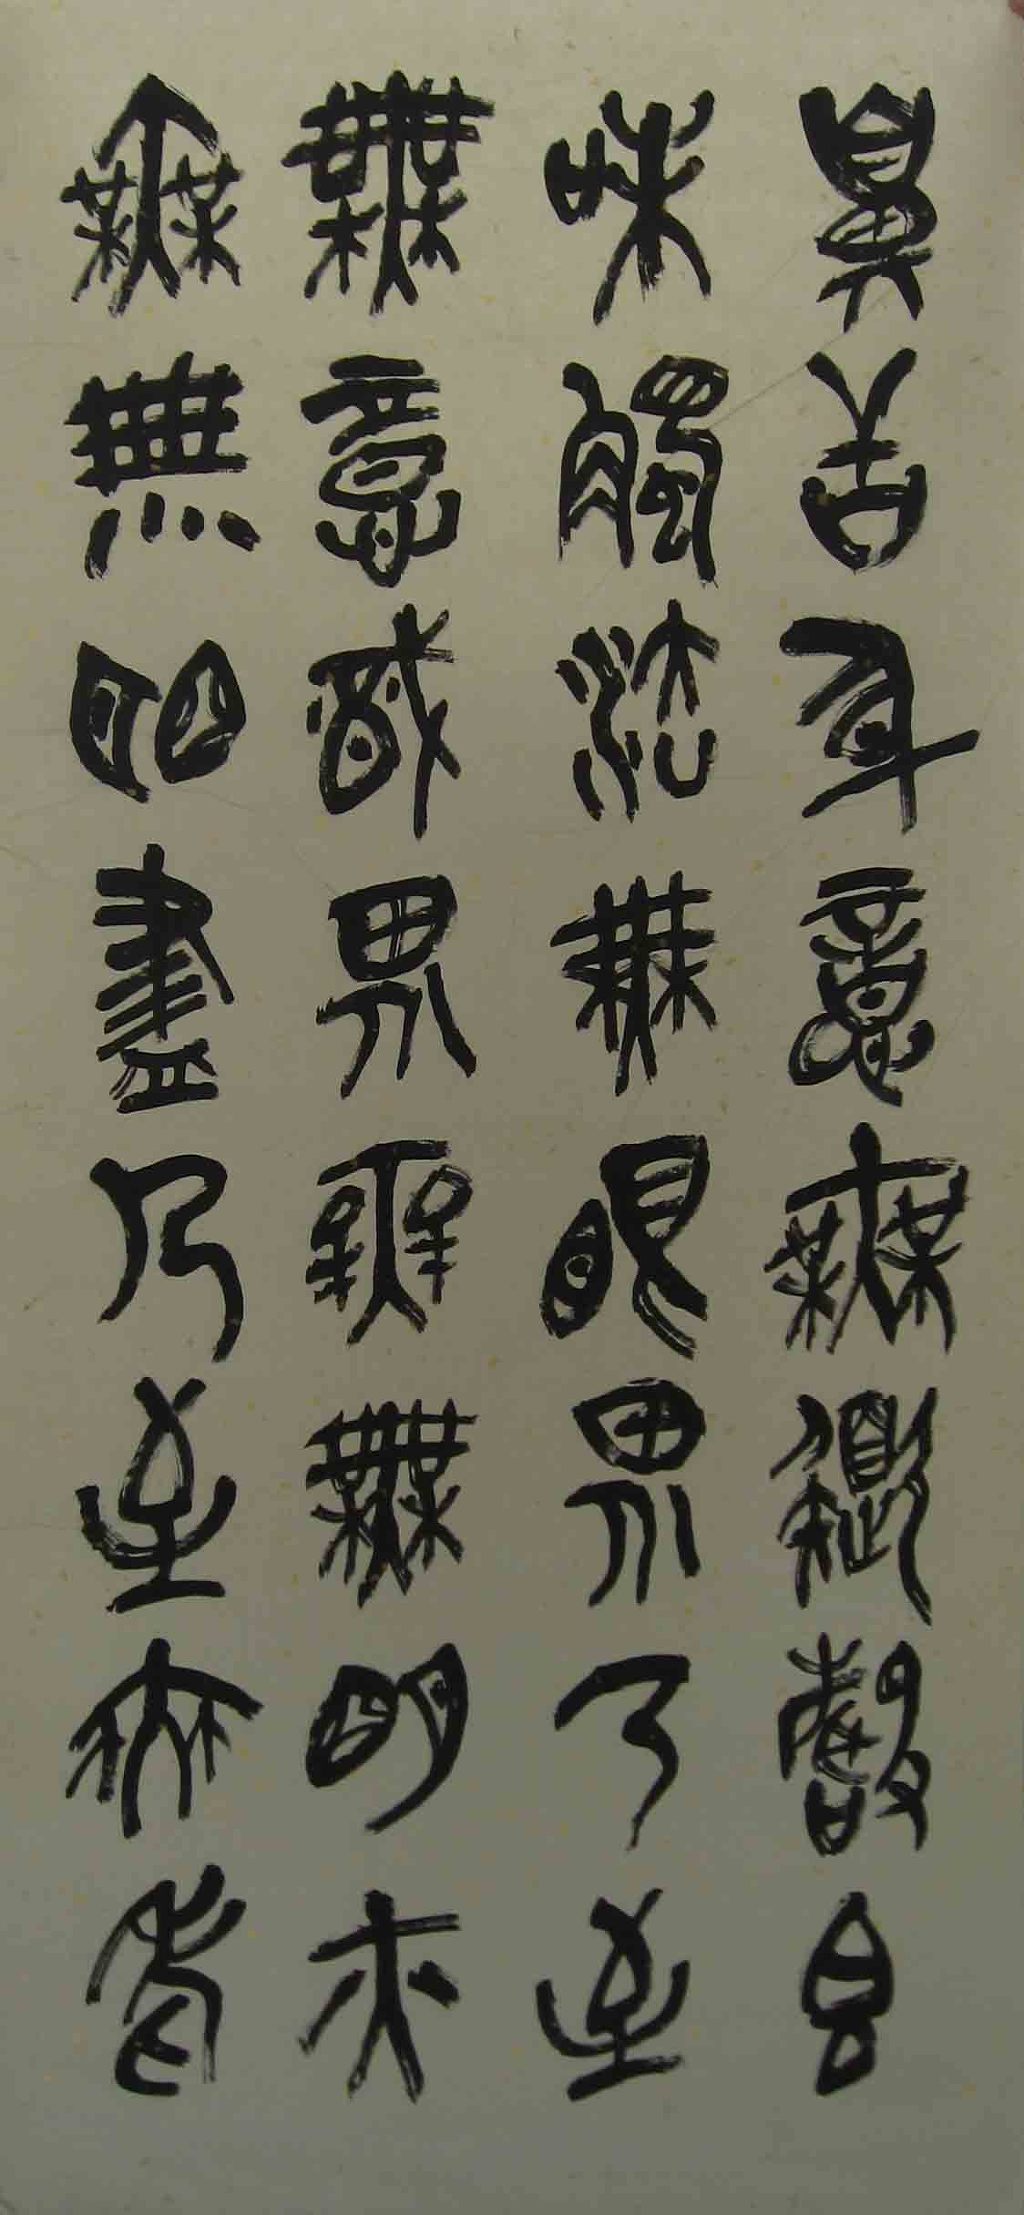 鼻舌身意無色聲香
味觸法無眼界乃至
無意識界無無明亦
無無明盡乃至無老